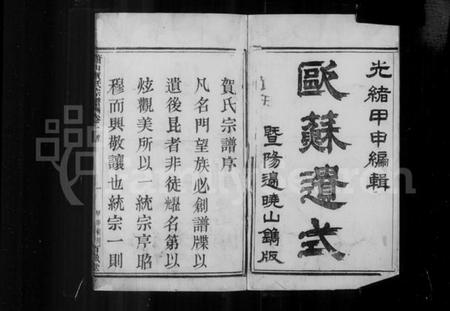 光緒甲申編輯
歐蘇遺式
暨陽邊曉山鐫版
賀氏宗譜序
凡名門望族必創譜牒以
遺後昆者非徒耀名第以
炫觀美所以一統宗序昭
穆而興敬讓也統宗一則